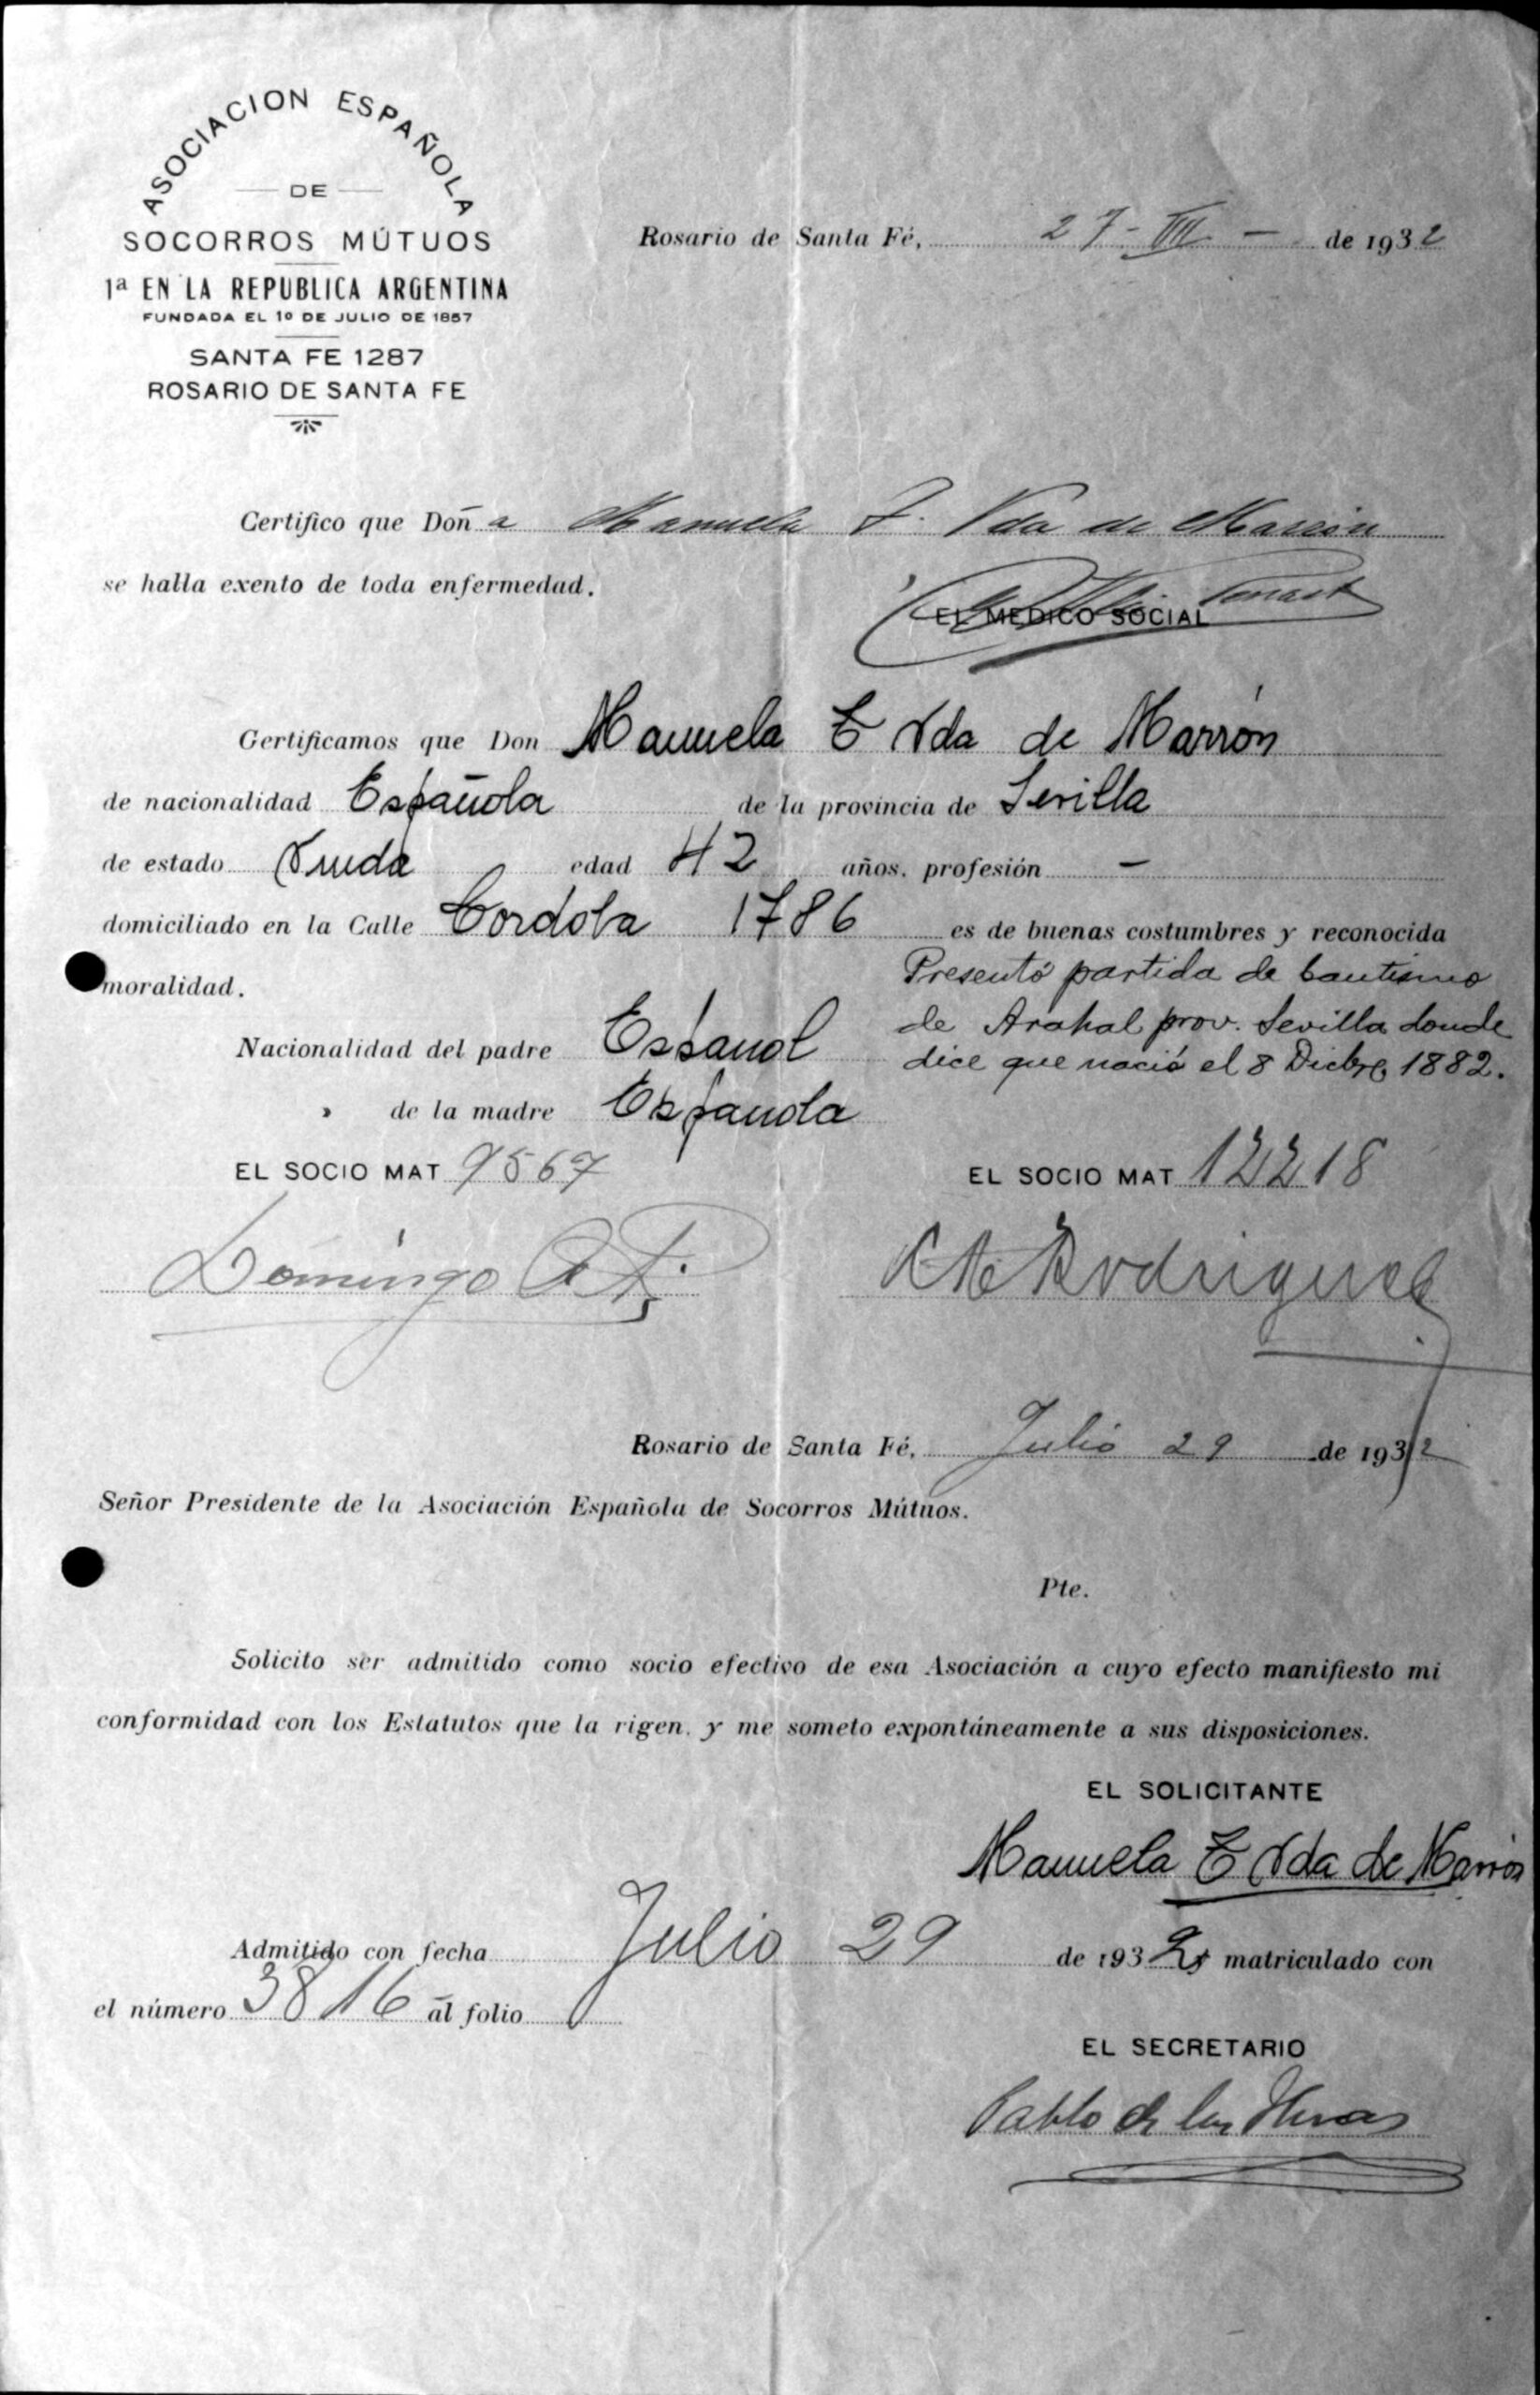 ASOCIACION ESPAÑOLA
DE
SOCORROS MÚTUOS
1ª EN LA REPUBLICA ARGENTINA
FUNDADA EL 1º DE JULIO DE 1857
SANTA FE 1287
ROSARIO DE SANTA FE
Rosario de Santa Fé, 27-VII- de 1932
Certifico que Doña Manuela F. Vda de
se halla exento de toda enfermedad.
EL MEDICO SOCIAL
Certificamos que Don Manuela E Vda de Marrón
de nacionalidad Española de la provincia de Sevilla
de estado Viuda edad 42 años, profesión -
domiciliado en la Calle Cordoba 1786 es de buenas costumbres y reconocida
moralidad.
Presentó partida de bautismo
de Arahal prov. Sevilla donde
dice que nació el 8 Dicbre 1882.
Nacionalidad del padre Español
» de la madre Española
EL SOCIO MAT 9567
EL SOCIO MAT 12218
Domingo
Rodriguez
Rosario de Santa Fé, Julio 29 de 1932
Señor Presidente de la Asociación Española de Socorros Mútuos.
Pte.
Solicito ser admitido como socio efectivo de esa Asociación a cuyo efecto manifiesto mi
conformidad con los Estatutos que la rigen, y me someto expontáneamente a sus disposiciones.
EL SOLICITANTE
Manuela E Vda de Marrón
Admitido con fecha Julio 29 de 1932 matriculado con
el número 3816 al folio
EL SECRETARIO
Pablo de las Heras